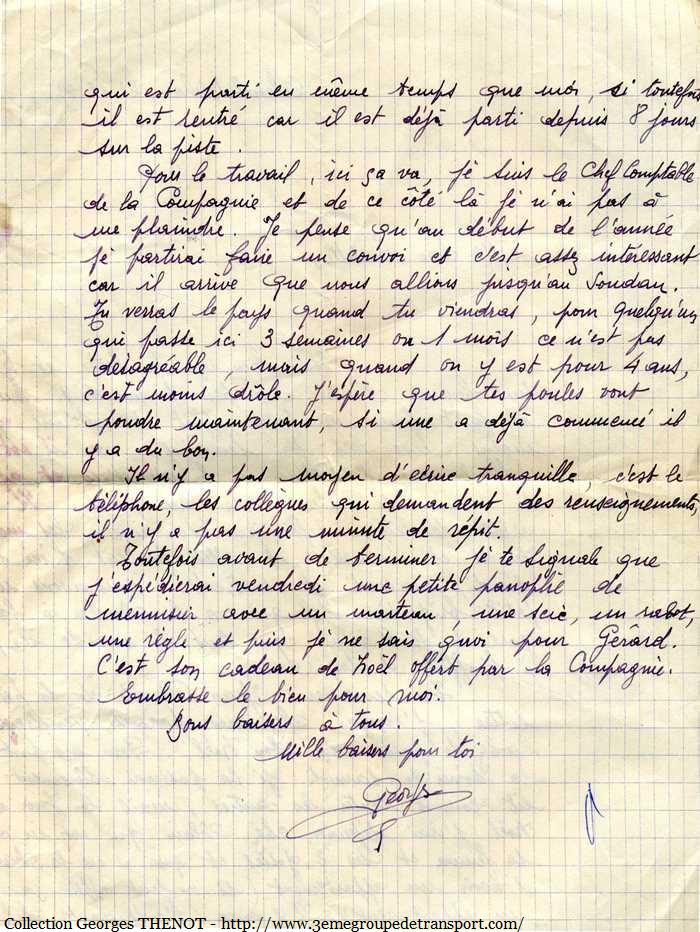 qui est parti en même temps que moi, si toutefois
il est rentré car il est déjà parti depuis 8 jours
sur la piste.
Pour le travail, ici ça va, je suis le Chef Comptable
de la Compagnie et de ce côté là je n'ai pas à
me plaindre. Je pense qu'au début de l'année
je partirai faire un convoi et c'est assez intéressant
car il arrive que nous allions jusqu'au Soudan.
Tu verras le pays quand tu viendras, pour quelqu'un
qui passe ici 3 semaines ou 1 mois ce n'est pas
désagréable, mais quand on y est pour 4 ans,
c'est moins drôle. J'espère que tes poules vont
pondre maintenant, si une a déjà commencé il
y a du bon.
Il n'y a pas moyen d'écrire tranquille, c'est le
téléphone, les collègues qui demandent des renseignements,
il n'y a pas une minute de répit.
Toutefois avant de terminer je te signale que
j'expédierai vendredi une petite panoplie de
menuisier avec un marteau, une scie, un rabot,
une règle et puis je ne sais quoi pour Gérard.
C'est son cadeau de Noël offert par la Compagnie.
Embrasse le bien pour moi.
Bons baisers à tous.
Mille baisers pour toi
Georges
Collection Georges THENOT - http://www.3emegroupedetransport.com/